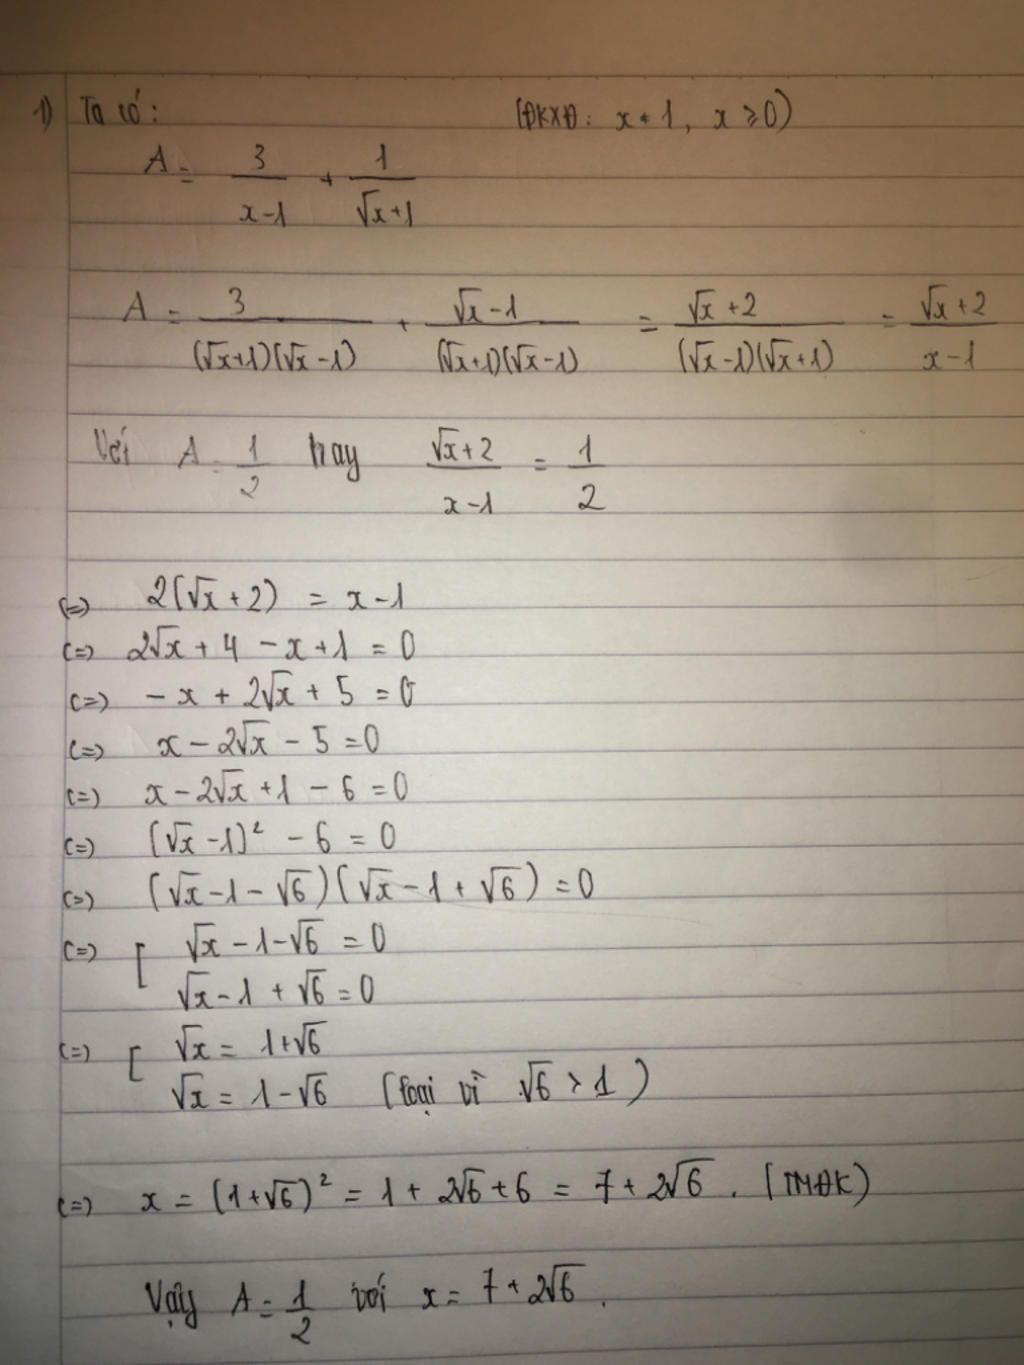 1) Ta có: (ĐKXĐ: x ≠ 1, x ≥ 0)
A = 3/(x-1) + 1/(√x+1)
A = 3/((√x+1)(√x-1)) + (√x-1)/((√x+1)(√x-1)) = (√x+2)/((√x-1)(√x+1)) = (√x+2)/(x-1)
Với A = 1/2 hay (√x+2)/(x-1) = 1/2
(=) 2(√x+2) = x-1
(=) 2√x + 4 - x + 1 = 0
(=) - x + 2√x + 5 = 0
(=) x - 2√x - 5 = 0
(=) x - 2√x + 1 - 6 = 0
(=) (√x - 1)² - 6 = 0
(=) (√x - 1 - √6)(√x - 1 + √6) = 0
(=) [ √x - 1 - √6 = 0
√x - 1 + √6 = 0
(=) [ √x = 1+√6
√x = 1 - √6 (loại vì √6 > 1)
(=) x = (1+√6)² = 1 + 2√6 + 6 = 7 + 2√6. (TMĐK)
Vậy A = 1/2 với x = 7 + 2√6.